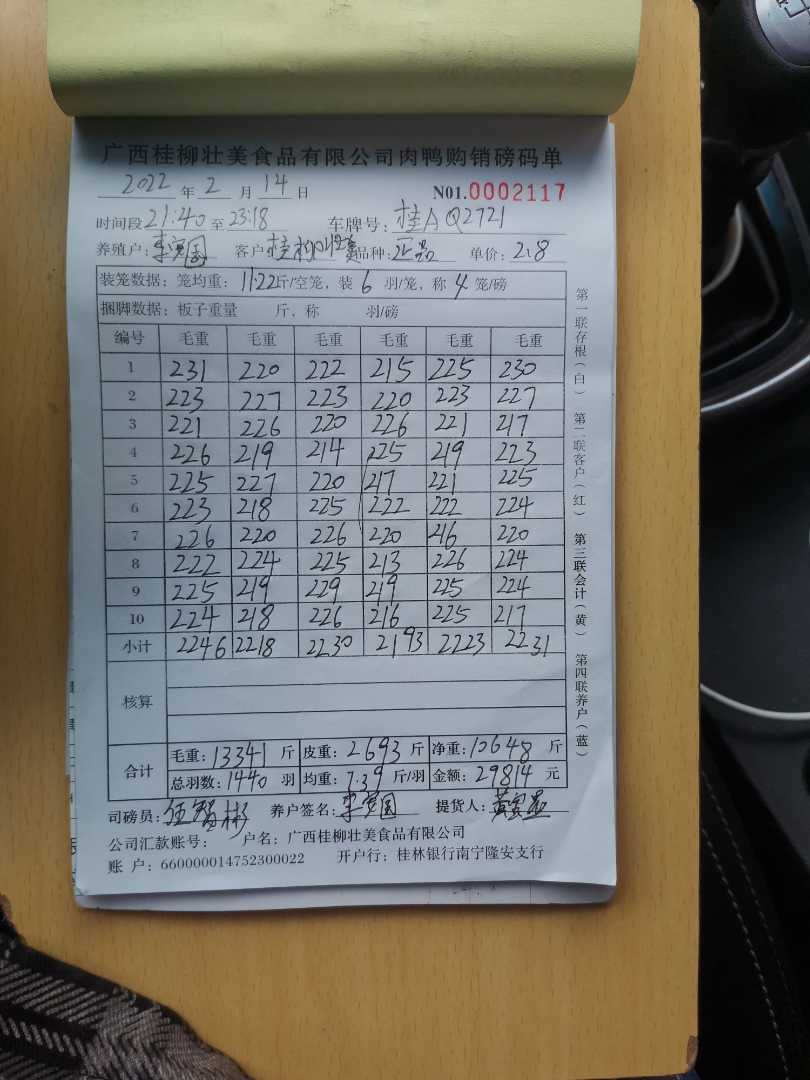 广西桂柳壮美食品有限公司肉鸭购销磅码单
2022 年 2 月 14 日 N01.0002117
时间段 21:40 至 23:18 车牌号: 桂A Q2721
养殖户: 李 国 客户: 桂柳壮美 品种: 正品 单价: 2.8
装笼数据: 笼均重: 11.22 斤/空笼, 装 6 羽/笼, 称 4 笼/磅
捆脚数据: 板子重量 斤, 称 羽/磅
编号 毛重 毛重 毛重 毛重 毛重 毛重
1 231 220 222 215 225 230
2 223 227 223 220 223 227
3 221 226 220 226 221 217
4 226 219 214 225 219 223
5 225 227 220 217 221 225
6 223 218 225 222 222 224
7 226 220 226 220 216 220
8 222 224 225 213 226 224
9 225 219 229 219 225 224
10 224 218 226 216 225 217
小计 2246 2218 2230 2193 2223 2231
核算
合计 毛重: 13341 斤 皮重: 2693 斤 净重: 10648 斤
总羽数: 1440 羽 均重: 7.39 斤/羽 金额: 29814 元
司磅员: 伍智彬 养户签名: 李 国 提货人: 黄
公司汇款账号: 户名: 广西桂柳壮美食品有限公司
账 户: 660000014752300022 开户行: 桂林银行南宁隆安支行
第一联存根(白) 第二联客户(红) 第三联会计(黄) 第四联养户(蓝)